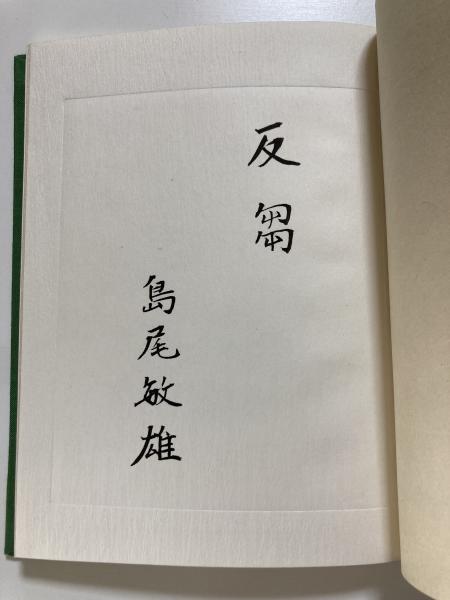 反芻
島尾敏雄